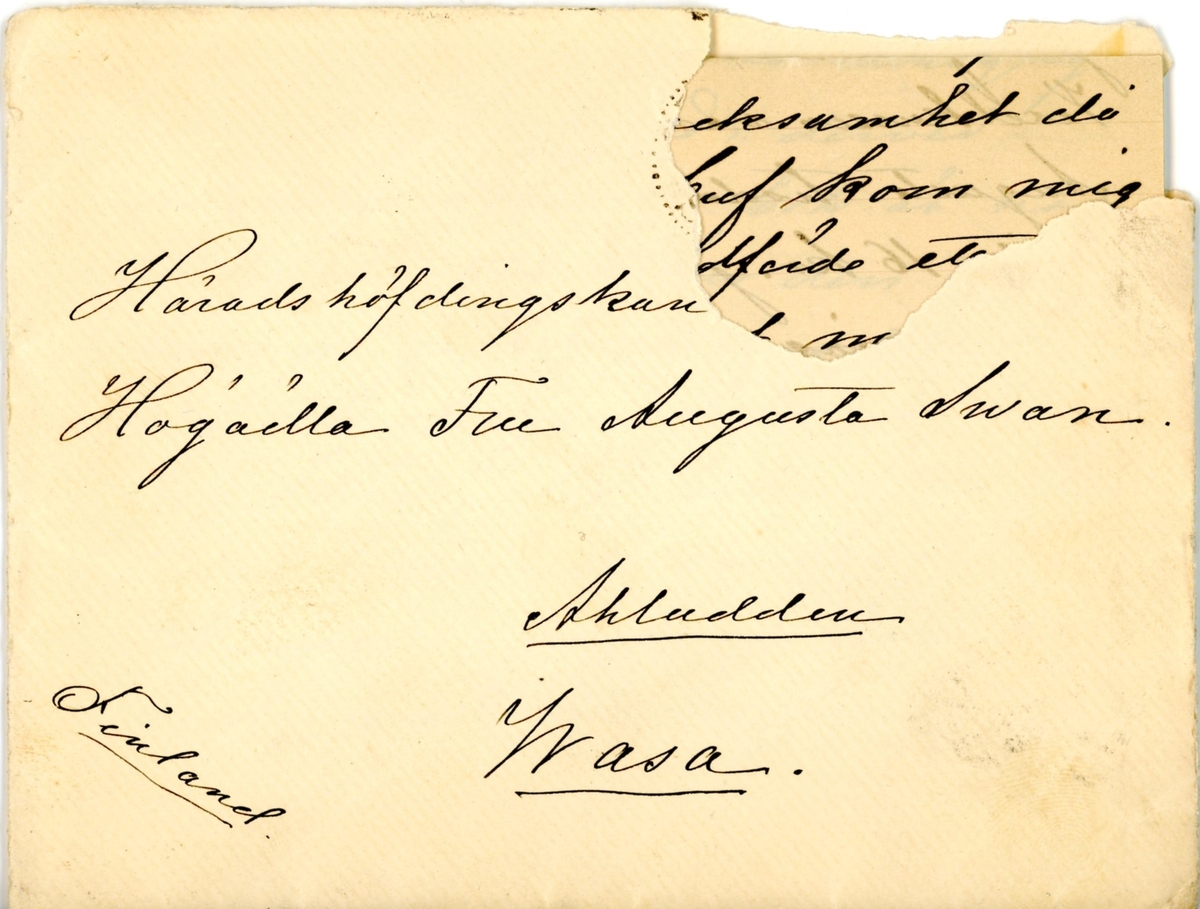 eksamhet då
kom mig
Häradshöfdingskan
Högädla Fru Augusta Swan.
Ahludden
Wasa.
Finland.